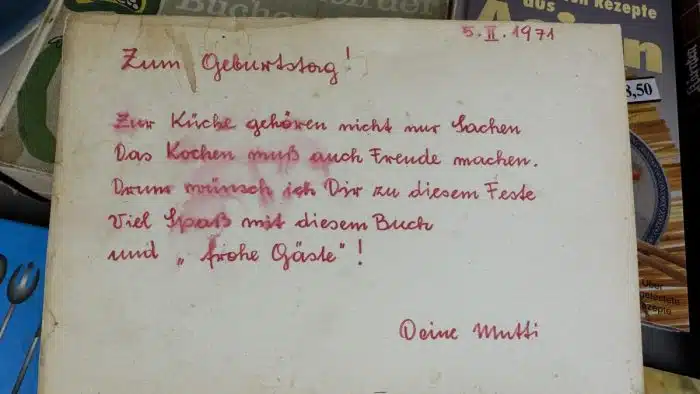 Bücher
Rezepte
aus
5. II. 1971
8,50
Zum Geburtstag!
Zur Küche gehören nicht nur Sachen
Das Kochen muß auch Freude machen.
Drum wünsch ich Dir zu diesem Feste
Viel Spaß mit diesem Buch
und „frohe Gäste"!
Deine Mutti
Über